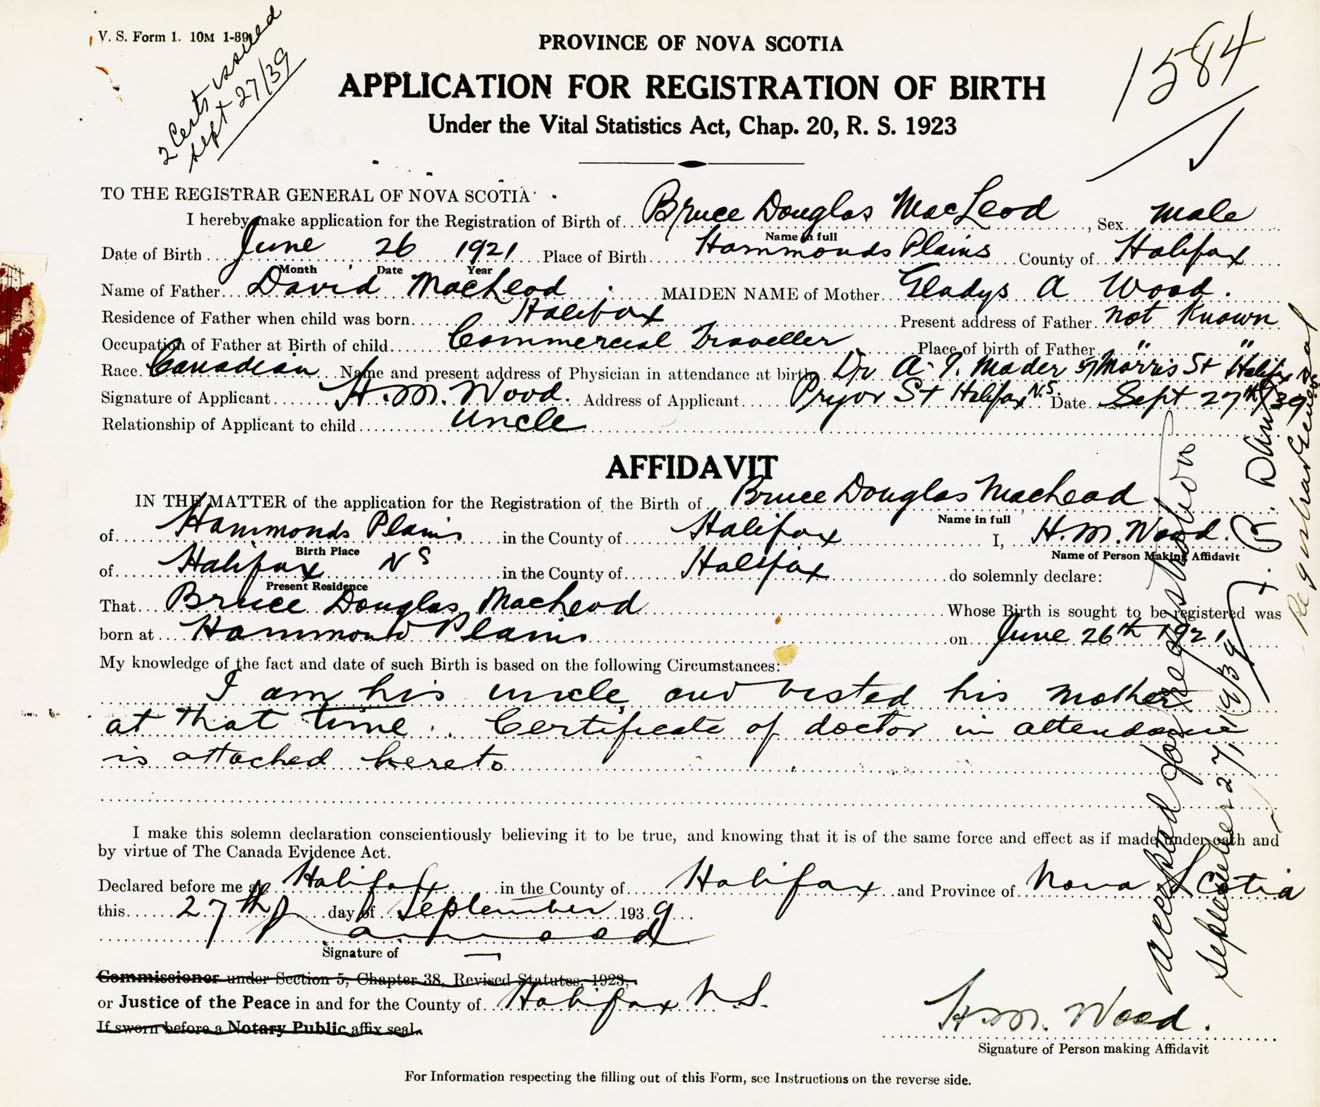 V. S. Form 1. 10M 1-39
2 Certs issued
Sept 27/39
1584
PROVINCE OF NOVA SCOTIA
APPLICATION FOR REGISTRATION OF BIRTH
Under the Vital Statistics Act, Chap. 20, R. S. 1923
TO THE REGISTRAR GENERAL OF NOVA SCOTIA
I hereby make application for the Registration of Birth of Bruce Douglas MacLeod, Sex male
Name in full
Date of Birth June 26 1921 Place of Birth Hammonds Plains County of Halifax
Month Date Year
Name of Father David MacLeod MAIDEN NAME of Mother Gladys A Wood.
Residence of Father when child was born Halifax Present address of Father not Known
Occupation of Father at Birth of child Commercial Traveller Place of birth of Father " "
Race. Canadian Name and present address of Physician in attendance at birth Dr A. I. Mader 57 Morris St Halifax N.S.
Signature of Applicant H. M. Wood. Address of Applicant Pryor St Halifax N.S. Date Sept 27th/39
Relationship of Applicant to child Uncle
AFFIDAVIT
IN THE MATTER of the application for the Registration of the Birth of Bruce Douglas MacLeod
Name in full
of Hammonds Plains in the County of Halifax I, H. M. Wood.
Birth Place Name of Person Making Affidavit
of Halifax N S in the County of Halifax do solemnly declare:
Present Residence
That Bruce Douglas MacLeod Whose Birth is sought to be registered was
born at Hammond Plains on June 26th 1921
My knowledge of the fact and date of such Birth is based on the following Circumstances:
I am his uncle and visted his mother
at that time. Certificate of doctor in attendance
is attached hereto
I make this solemn declaration conscientiously believing it to be true, and knowing that it is of the same force and effect as if made under oath and
by virtue of The Canada Evidence Act.
Declared before me at Halifax in the County of Halifax and Province of Nova Scotia
this 27th day of September 1939
Signature of
Commissioner under Section 5, Chapter 38, Revised Statutes, 1923,
or Justice of the Peace in and for the County of Halifax N.S.
If sworn before a Notary Public affix seal.
H. M. Wood.
Signature of Person making Affidavit
For Information respecting the filling out of this Form, see Instructions on the reverse side.
accepted for registration
September 27, 1939
Registrar General